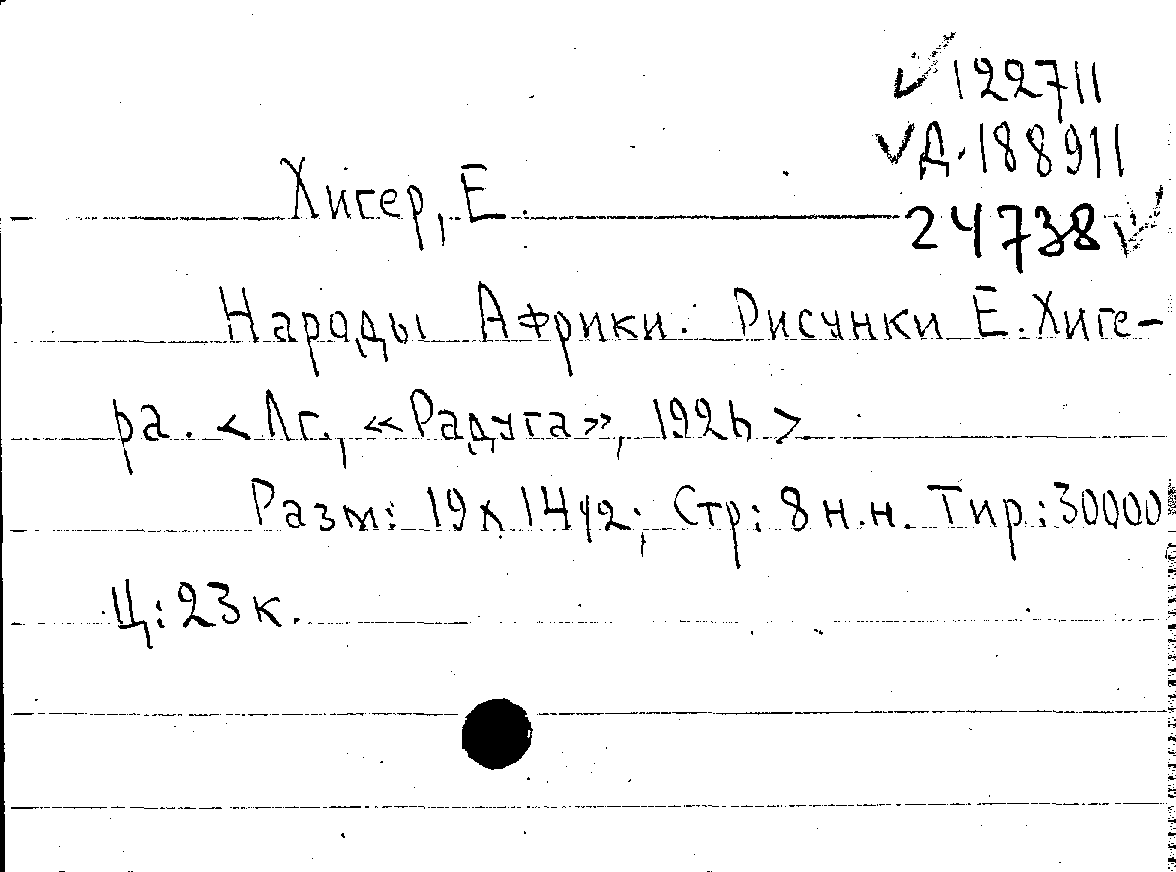 122711
Д. 188911
Хигер, Е.
24738
Народы Африки. Рисунки Е. Хиге-
ра. <Лг., «Радуга»,
Разм: 19 х 14 1/2; Стр: 8 н.н. Тир: 30000
Ц: 23 к.